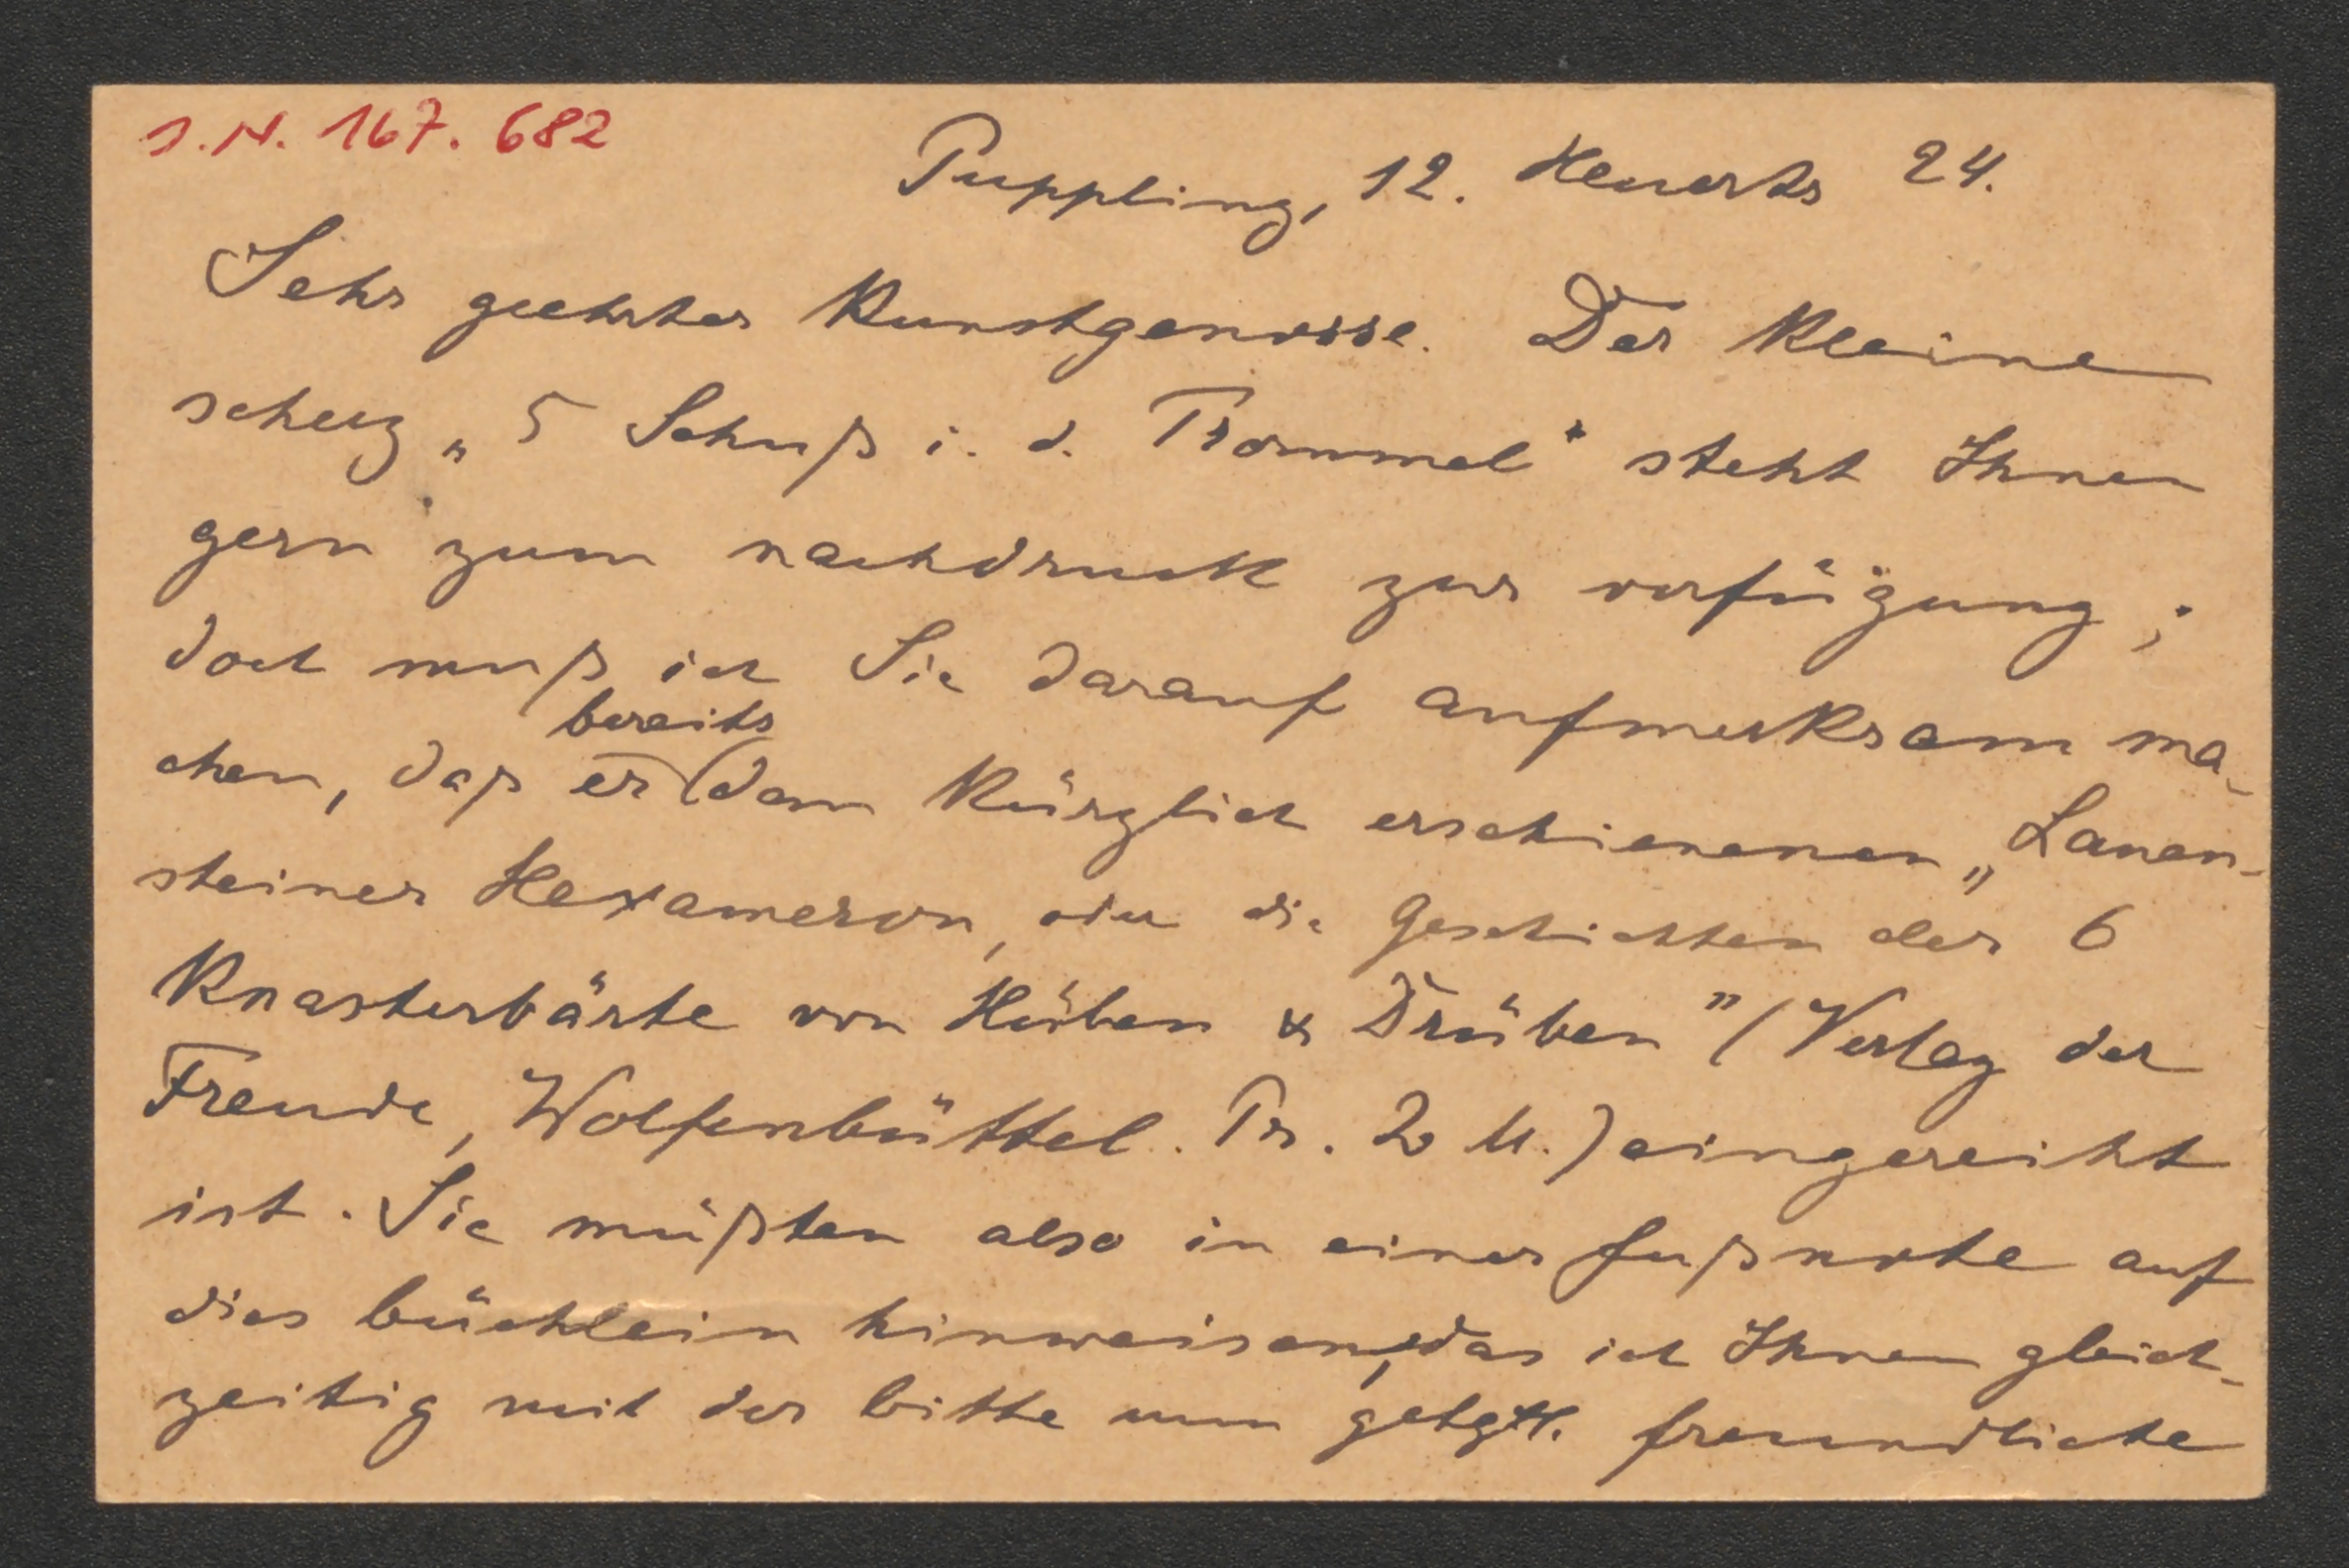 I.N. 167.682
Puppling, 12. Heuerts 24.
Sehr geehrter Kunstgenosse. Der kleine
scherz „5 Schuß i. d. Trommel“ steht Ihnen
gern zum nachdruck zur verfügung;
doch muß ich Sie darauf aufmerksam ma-
bereits
chen, daß er dem kürzlich erschienenen „Lauen-
steiner Hexameron, oder die Geschichten der 6
Knasterbärte von Hüben & Drüben” (Verlag der
Freude, Wolfenbüttel. Pr. 2 M.) eingereiht
ist. Sie müßten also in einer fußnote auf
dies büchlein hinweisen, das ich Ihnen gleich-
zeitig mit der bitte um freundliche